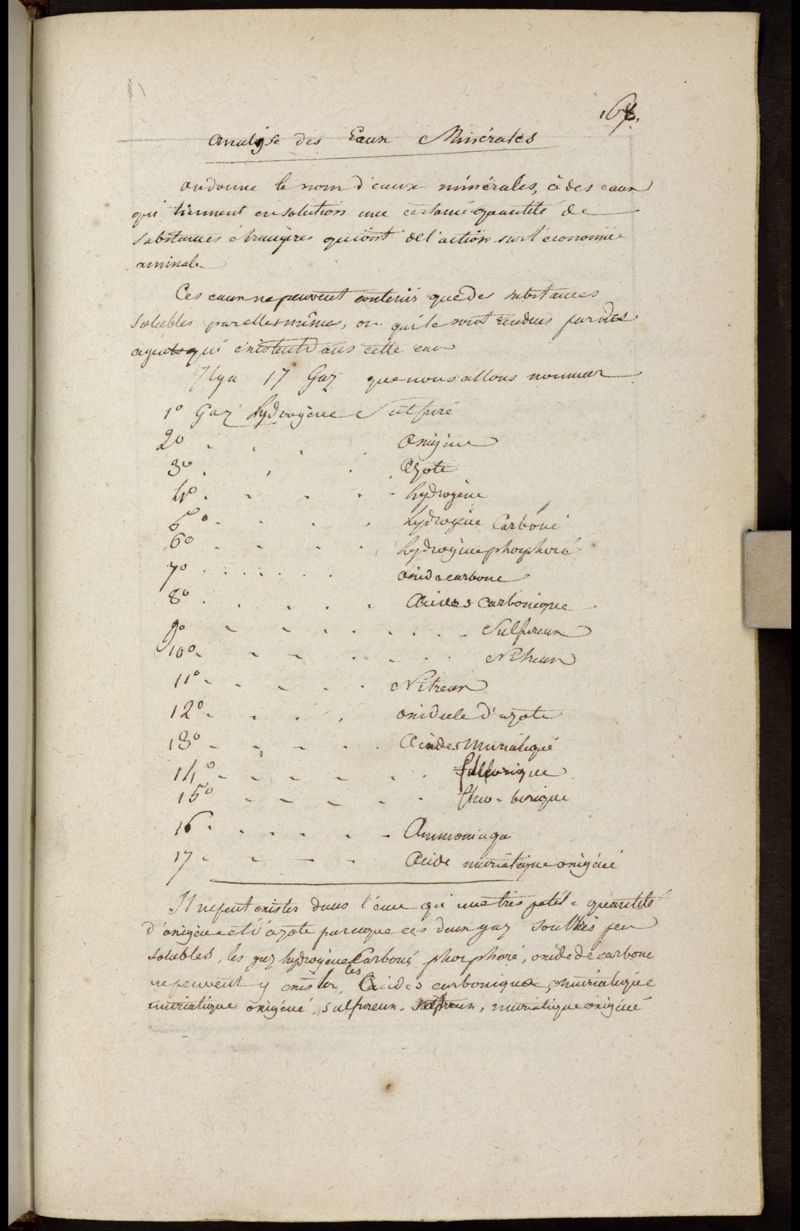 167.
Analyse des Eaux Minérales
on donne le nom d'eaux minérales, à des eaux
qui tiennent en solution une certaine quantité de
substances étrangères qui ont de l'action sur l'économie
animale
Ces eaux ne peuvent contenir que des substances
solubles par elles mêmes, ou qui le sont rendues par des
agents qui existent dans cette eau
Il y a 17 Gaz que nous allons nommer
1º Gaz hydrogène Sulfuré
2º . . . . oxigène
3º . . . Azote
4º . . . . . hydrogène
5º . . . . hydrogène Carboné
6º . . . . hydrogène phosphoré
7º . . . . . . oxide carbone
8º . . . . . Acides Carbonique
9º . . . . . . . . Sulfureux
10º . . . . . . . Nitreux
11º . . . . . Nitreux
12º . . . . oxidule d'azote
13º . . . . . Acides Muriatique
14º . . . . . . fluorique
15º . . . . . . fluo-borique
16 . . . . . . Ammoniaque
17 . . . . Acide muriatique oxigéné
Il ne peut exister dans l'eau qu'une très petite quantité
d'oxigène et d'azote parceque ces deux gaz sont très peu
solubles, les gaz hydrogène Carboné, phosphoré, oxide de carbone
ne peuvent y exister, les Acides carbonique, muriatique
muriatique oxigéné, sulfureux, muriatique oxigéné